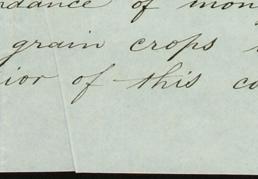 ndance of mon
grain crops
ior of this co